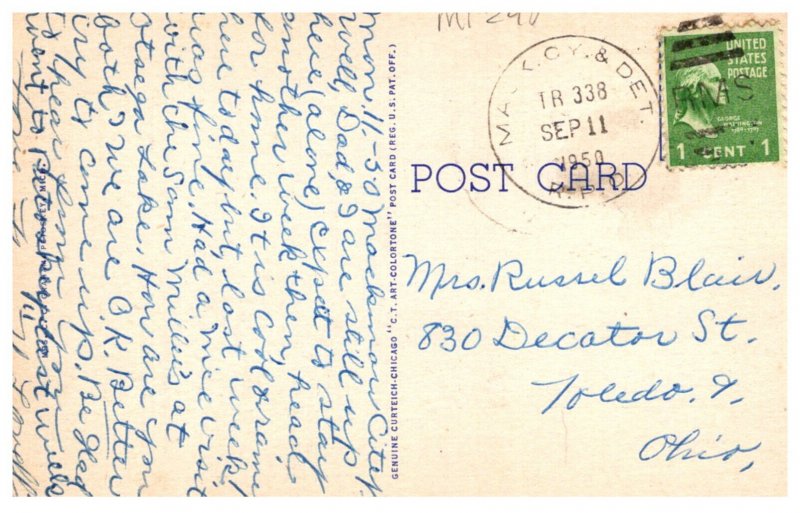 MI 290
MACK. CY. & DET.
TR 338
SEP 11
1950
R.P.O.
UNITED
STATES
POSTAGE
GEORGE
WASHINGTON
1 CENT 1
POST CARD
Mrs. Russel Blair,
830 Decator St.
Toledo. 9.
Ohio,
GENUINE CURTEICH-CHICAGO "C.T. ART-COLORTONE" POST CARD (REG. U.S. PAT. OFF.)
Mon. 11-50 Mackinaw City
Well, Dad & I are still up
here (alone) expect to stay
another week then, head
for home. It is cool & rainy
here today but last week
was fine. Had a nice visit
with the Sam Millers at
Otsego Lake. How are you
both? We are O.K. Better
try to come up. Be glad
to hear from you
want to